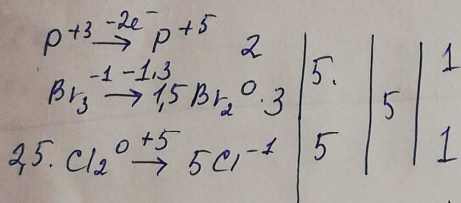 P⁺³ -2e⁻ → P⁺⁵ 2 | 5. | 5 | 1
Br₃⁻¹ -1.3 → 1,5 Br₂⁰ · 3
2,5. Cl₂⁰ +5 → 5Cl⁻¹ | 5 | 1